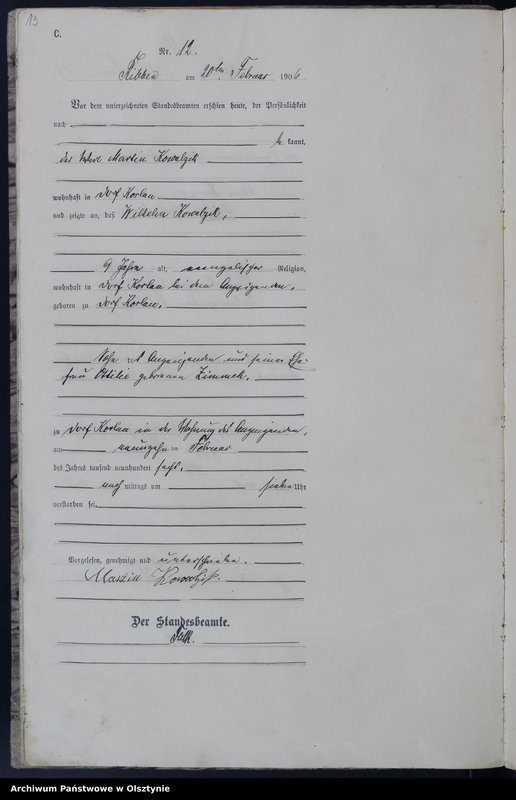 13
C.
Nr. 12.
Ribben am 20ten Februar 1906.
Vor dem unterzeichneten Standesbeamten erschien heute, der Persönlichkeit
nach
be kannt,
der Wirt Martin Kowalzik
wohnhaft in Dorf Koslau
und zeigte an, daß Wilhelm Kowalzik,
9 Jahre alt, evangelischer Religion,
wohnhaft in Dorf Koslau bei dem Anzeigenden,
geboren zu Dorf Koslau,
Sohn des Anzeigenden und seiner Ehe-
frau Ottilie geborenen Zimmek,
zu Dorf Koslau in der Wohnung des Anzeigenden,
am neunzehn ten Februar
des Jahres tausend neunhundert sechs,
nach mittags um sieben Uhr
verstorben sei.
Vorgelesen, genehmigt und unterschrieben.
Martin Kowalzik.
Der Standesbeamte.
Archiwum Państwowe w Olsztynie